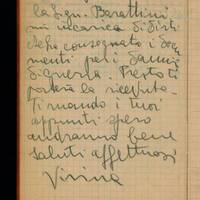 la Sign. Barattini
mi incarica di dirti
che ha consegnato i docu
menti per i danni
di guerra. Presto ti
porterà la ricevuta.
Ti mando i tuoi
appunti spero
andranno bene
saluti affettuosi
Virina